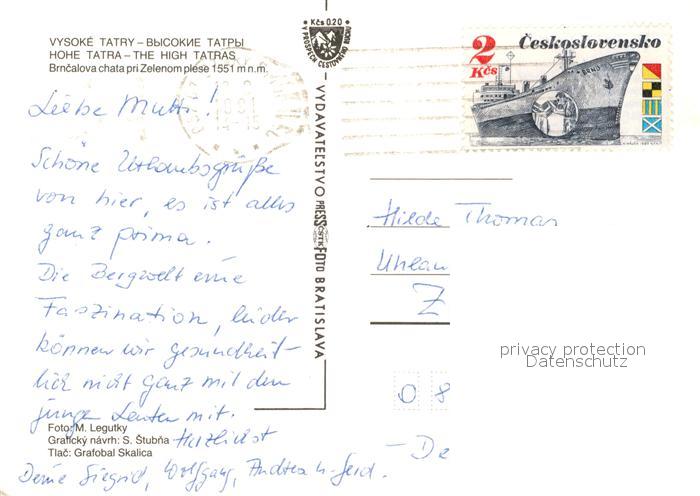 VYSOKÉ TATRY – ВЫСОКИЕ ТАТРЫ
HOHE TATRA – THE HIGH TATRAS
Brnčalova chata pri Zelenom plese 1551 m n. m.
Liebe Mutti!
Schöne Urlaubsgrüße
von hier, es ist alles
ganz prima.
Die Bergwelt eine
Faszination, leider
können wir gesundheit-
lich nicht ganz mit den
jungen Leuten mit.
Herzlichst
Deine Siegrid, Wolfgang, Andrea u. Gerd.
Foto: M. Legutky
Grafický návrh: S. Štubňa
Tlač: Grafobal Skalica
Kčs 0.20
V PROSPECH CESTOVNÉHO RUCHU
VYDAVATEĽSTVO PRESSFOTO BRATISLAVA
ČSTK
2 Kčs
Československo
BRNO
1991
Hilde Thomas
Z
08
– De
privacy protection
Datenschutz